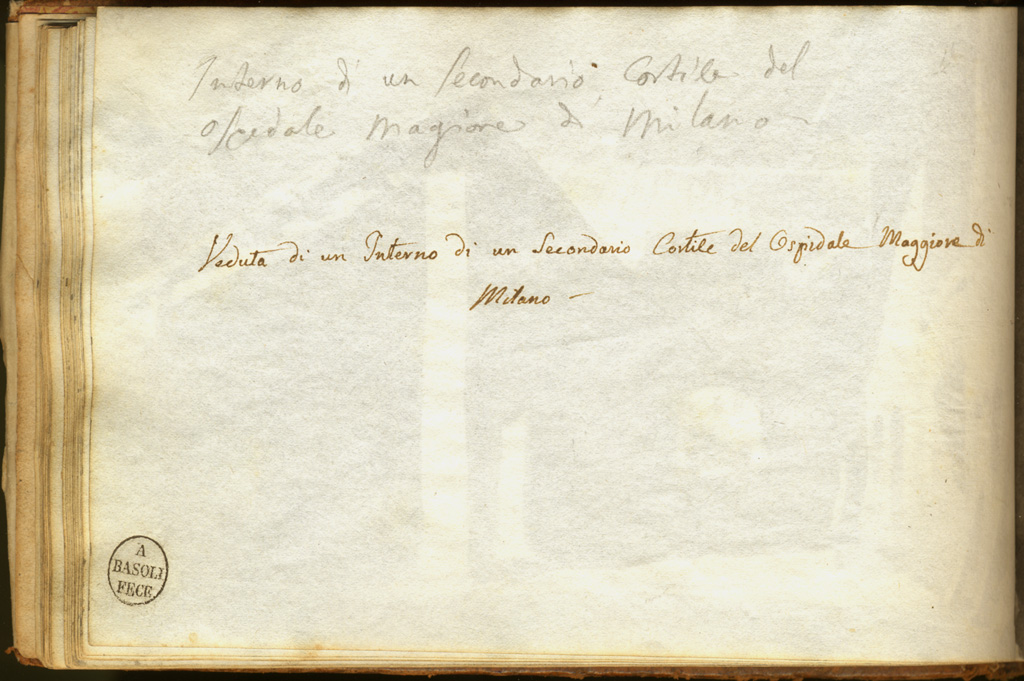 Interno di un Secondario Cortile del
Ospedale Magiore di Milano -
Veduta di un Interno di un Secondario Cortile del Ospidale Maggiore di
Milano -
A
BASOLI
FECE